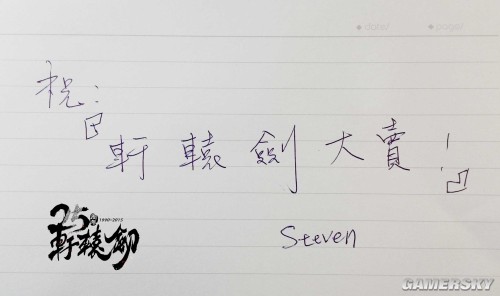 date/ page/
祝:
「軒轅劍大賣!」
Steven
25 1990-2015
軒轅劍
GAMERSKY